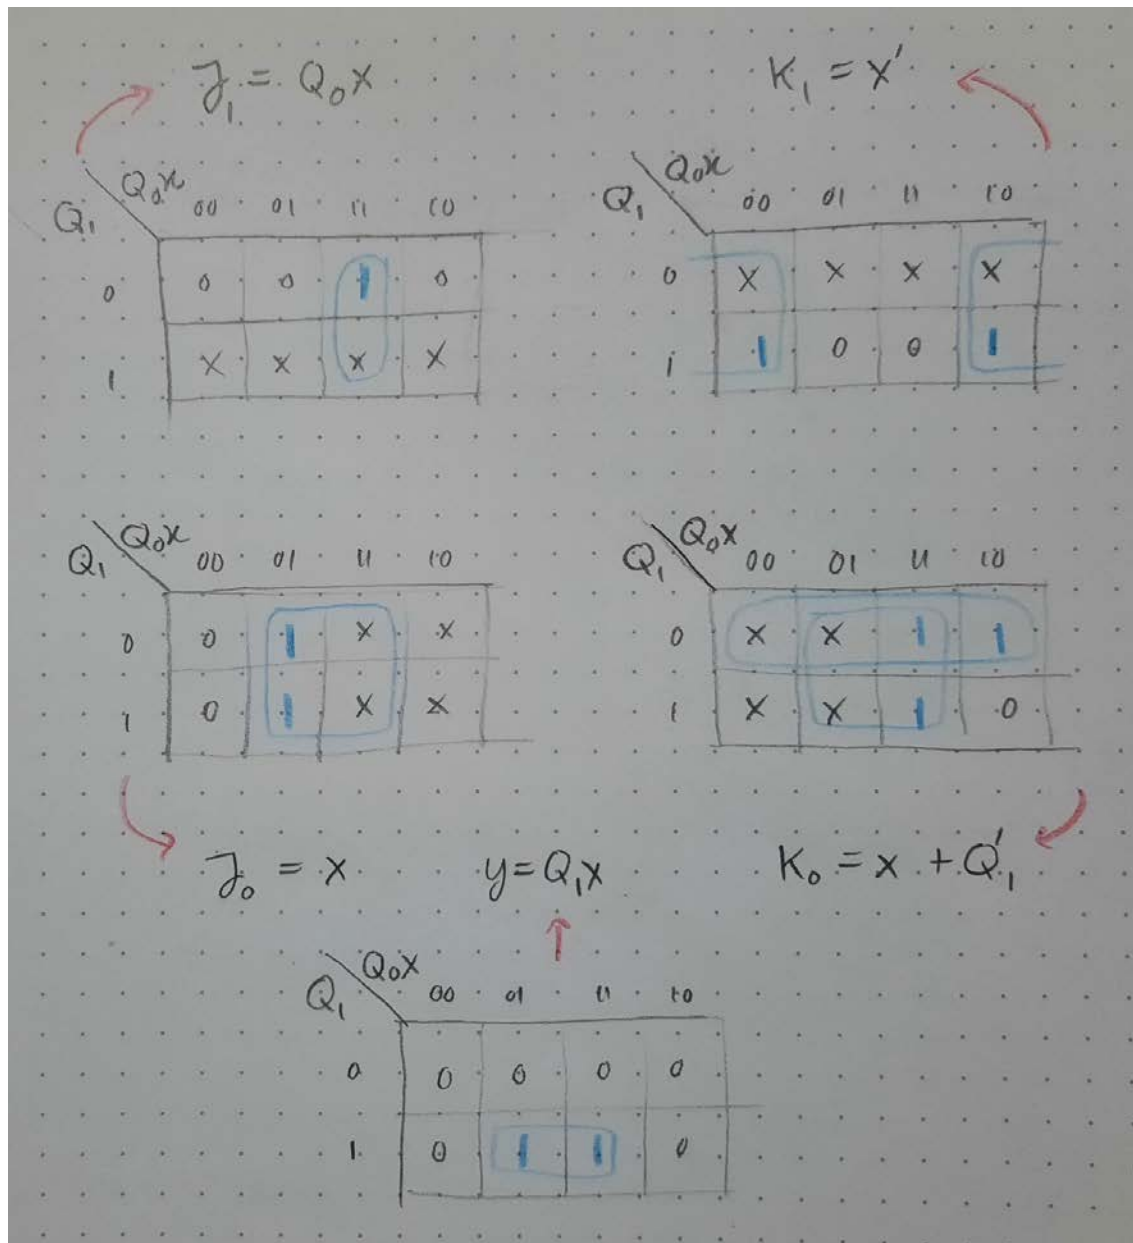 J₁ = Q₀x
K₁ = x'
Q₀x
Q₁ 00 01 11 10
0 0 0 1 0
1 X X X X
Q₀x
Q₁ 00 01 11 10
0 X X X X
1 1 0 0 1
Q₀x
Q₁ 00 01 11 10
0 0 1 X X
1 0 1 X X
Q₀x
Q₁ 00 01 11 10
0 X X 1 1
1 X X 1 0
J₀ = x
y = Q₁x
K₀ = x + Q₁'
Q₀x
Q₁ 00 01 11 10
0 0 0 0 0
1 0 1 1 0